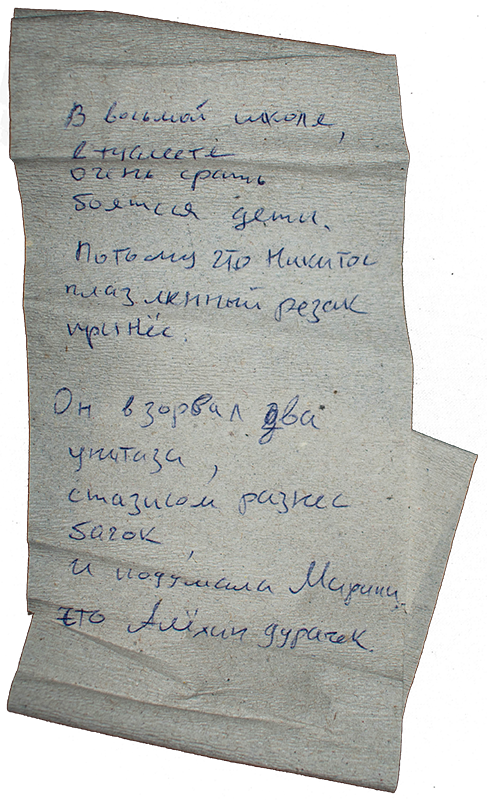 В восьмой школе,
в туалете
очень срать
боятся дети.
Потому что Никитос
плазменный резак
принёс.
Он взорвал два
унитаза,
стазисом разнес
бачок,
и подумала Марина,
что Алёхин дурачек.